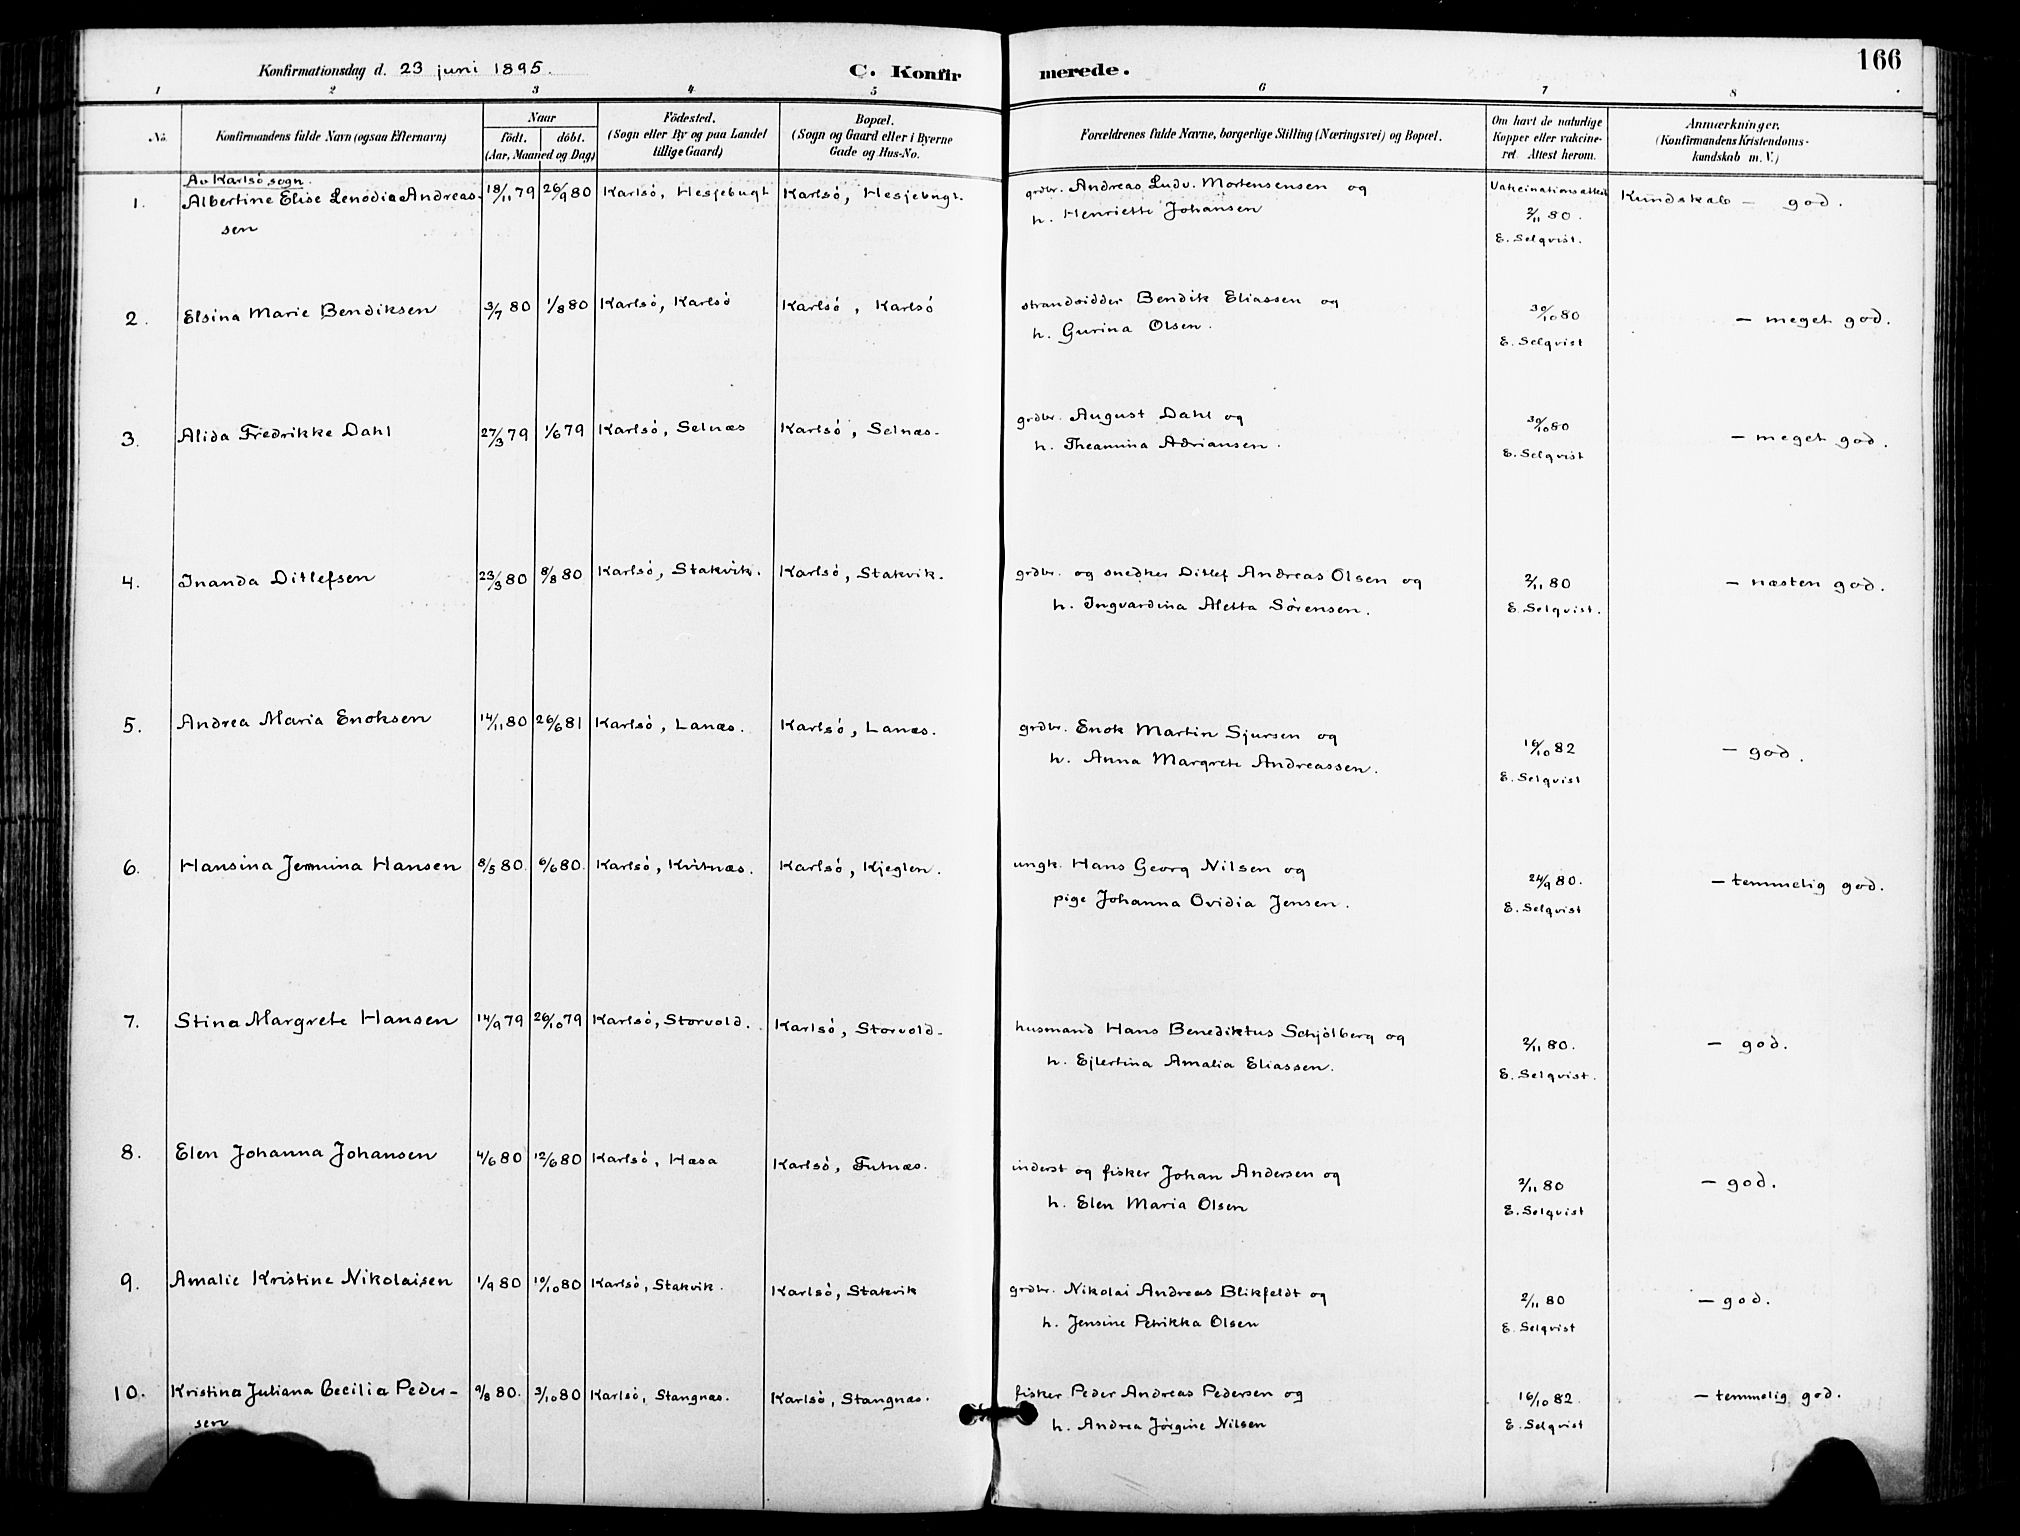 Konfirmationsdag d. 23 juni 1895.
C. Konfirmerede.
166
1 2 3 4 5 6 7 8
No.
Konfirmandens fulde Navn (ogsaa Efternavn)
Naar
Födt. döbt.
(Aar, Maaned og Dag)
Födested.
(Sogn eller By og paa Landet
tillige Gaard)
Bopæl.
(Sogn og Gaard eller i Byerne
Gade og Hus-No.
Forældrenes fulde Navne, borgerlige Stilling (Næringsvei) og Bopæl.
Om havt de naturlige
Kopper eller vakcine-
ret. Attest herom.
Anmærkninger.
(Konfirmandens Kristendoms-
kundskab m. V.)
Av Karlsö sogn.
1. Albertine Elise Lenodia Andreas-
sen
18/11 79 26/9 80 Karlsö, Hesjebugt Karlsö, Hesjebugt.
grdbr. Andreas Ludv. Mortensensen og
h. Henriette Johansen
Vakcinationsattest
2/11 80.
E. Selqvist.
Kundskab – god.
2. Elsina Marie Bendiksen 3/7 80 1/8 80 Karlsö, Karlsö Karlsö, Karlsö
strandsidder Bendik Eliassen og
h. Gurina Olsen.
30/10 80
E. Selqvist
– meget god.
3. Alida Fredrikke Dahl 27/3 79 1/6 79 Karlsö, Selnæs Karlsö, Selnæs.
grdbr. August Dahl og
h. Theamina Adriansen.
30/10 80
E. Selqvist
– meget god.
4. Inanda Ditlefsen 23/3 80 8/8 80 Karlsö, Stakvik. Karlsö, Stakvik.
grdbr. og snedker Ditlef Andreas Olsen og
h. Ingvardina Aletta Sörensen.
2/11 80
E. Selqvist.
– næsten god.
5. Andrea Maria Enoksen 14/11 80 26/6 81 Karlsö, Lanæs. Karlsö, Lanæs.
grdbr. Enok Martin Sjursen og
h. Anna Margrete Andreassen.
16/10 82
E. Selqvist
– god.
6. Hansina Jermina Hansen 8/5 80 6/6 80. Karlsö, Kvitnæs. Karlsö, Kjeglen.
ungk. Hans Georg Nilsen og
pige Johanna Ovidia Jensen.
24/9 80.
E. Selqvist
– temmelig god.
7. Stina Margrete Hansen 14/9 79 26/10 79 Karlsö, Storvold. Karlsö, Storvold.
husmand Hans Benediktus Schjölberg og
h. Ejlertina Amalia Eliassen.
2/11 80.
E. Selqvist.
– god.
8. Elen Johanna Johansen 4/6 80 12/6 80 Karlsö, Hæsa Karlsö, Futnæs.
inderst og fisker Johan Andersen og
h. Elen Maria Olsen
2/11 80
E. Selqvist
– god.
9. Amalie Kristine Nikolaisen 1/9 80 10/10 80 Karlsö, Stakvik. Karlsö, Stakvik
grdbr. Nikolai Andreas Blikfeldt og
h. Jensine Petrikka Olsen
2/11 80
E. Selqvist
– god.
10. Kristina Juliana Cecilia Peder-
sen
9/8 80. 3/10 80 Karlsö, Stangnæs. Karlsö, Stangnæs.
fisker Peder Andreas Pedersen og
h. Andrea Jörgine Nilsen
16/10 82.
E. Selqvist
– temmelig god.